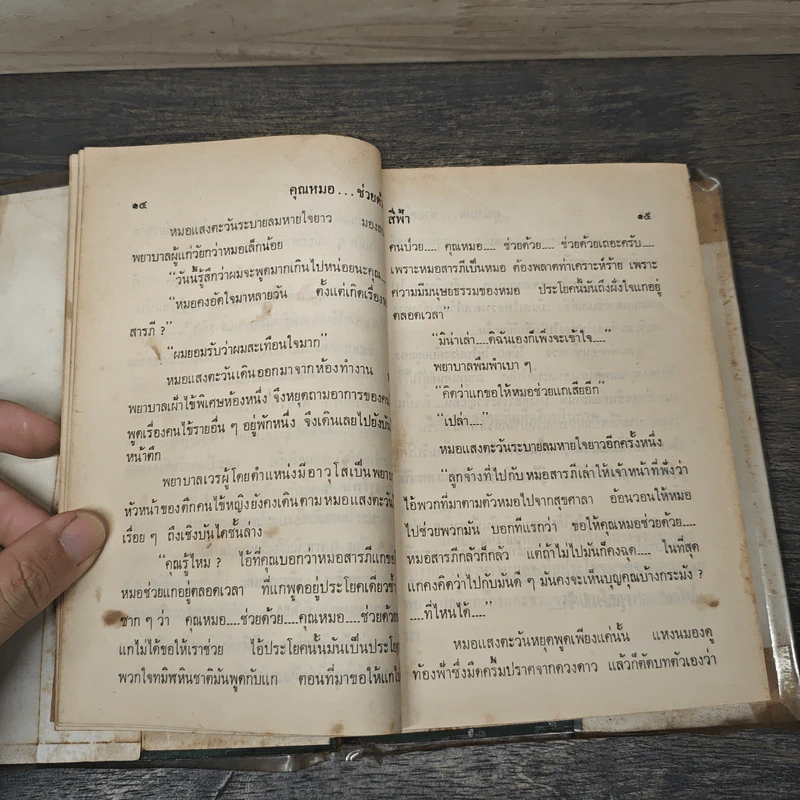 ๑๔
คุณหมอ...ช่วยด้วย
หมอแสงตะวันระบายลมหายใจยาว
พยาบาลผู้แก่วัยกว่าหมอเล็กน้อย
“วันนี้รู้สึกว่าผมจะพูดมากเกินไปหน่อยนะคุณ...
“หมอคงอัดใจมาหลายวัน ตั้งแต่เกิดเรื่อง
สารภี ?”
“ผมยอมรับว่าผมสะเทือนใจมาก”
หมอแสงตะวันเดินออกมาจากห้องทำงาน
พยาบาลเฝ้าไข้พิเศษห้องหนึ่ง จึงหยุดถามอาการของคน
พูดเรื่องคนไข้รายอื่น ๆ อยู่พักหนึ่ง จึงเดินเลยไปยังบัน
หน้าตึก
พยาบาลเวรผู้โดยตำแหน่งมีอาวุโสเป็นพยาบา
หัวหน้าของตึกคนไข้หญิงยังคงเดินตามหมอแสงตะวัน
เรื่อย ๆ ถึงเชิงบันไดชั้นล่าง
“คุณรู้ไหม ? ไอ้ที่คุณบอกว่าหมอสารภีแกขอ
หมอช่วยแกอยู่ตลอดเวลา ที่แกพูดอยู่ประโยคเดียวซ้ำ
ซาก ๆ ว่า คุณหมอ....ช่วยด้วย....คุณหมอ....ช่วยด้วย
แกไม่ได้ขอให้เราช่วย ไอ้ประโยคนั้นมันเป็นประโย
พวกใจทมิฬหินชาติมันพูดกับแก ตอนที่มาขอให้แกไป
สีฟ้า
๑๕
คนป่วย.... คุณหมอ.... ช่วยด้วย.... ช่วยด้วยเถอะครับ....
เพราะหมอสารภีเป็นหมอ ต้องพลาดท่าเคราะห์ร้าย เพราะ
ความมีมนุษยธรรมของหมอ ประโยคนี้มันถึงฝังใจแกอยู่
ตลอดเวลา”
“มิน่าเล่า....ดิฉันเองก็เพิ่งจะเข้าใจ....”
พยาบาลพึมพำเบา ๆ
“คิดว่าแกขอให้หมอช่วยแกเสียอีก”
“เปล่า....”
หมอแสงตะวันระบายลมหายใจยาวอีกครั้งหนึ่ง
“ลูกจ้างที่ไปกับหมอสารภีเล่าให้เจ้าหน้าที่ฟังว่า
ไอ้พวกที่มาตามตัวหมอไปจากสุขศาลา อ้อนวอนให้หมอ
ไปช่วยพวกมัน บอกทีแรกว่า ขอให้คุณหมอช่วยด้วย....
หมอสารภีกลัวก็กลัว แต่ถ้าไม่ไปมันก็คงฉุด.... ในที่สุด
แกคงคิดว่าไปกับมันดี ๆ มันคงจะเห็นบุญคุณบ้างกระมัง ?
....ที่ไหนได้....”
หมอแสงตะวันหยุดพูดเพียงแค่นั้น แหงนมองดู
ท้องฟ้าซึ่งมืดครึ้มปราศจากดวงดาว แล้วก็ตัดบทตัวเองว่า